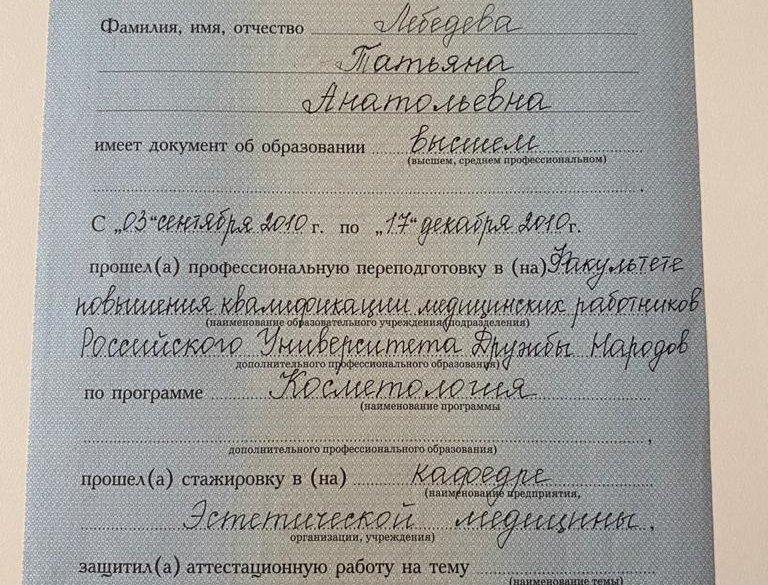 Фамилия, имя, отчество Лебедева
Татьяна
Анатольевна
имеет документ об образовании высшем
(высшем, среднем профессиональном)
С „03“ сентября 2010 г. по „17“ декабря 2010 г.
прошел(а) профессиональную переподготовку в (на) Факультете
повышения квалификации медицинских работников
(наименование образовательного учреждения (подразделения)
Российского Университета Дружбы Народов
дополнительного профессионального образования)
по программе Косметология
(наименование программы
,
дополнительного профессионального образования)
прошел(а) стажировку в (на) кафедре
(наименование предприятия,
Эстетической медицины,
организации, учреждения)
защитил(а) аттестационную работу на тему
(наименование темы)